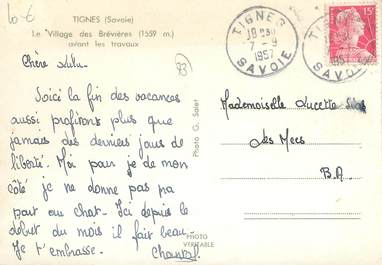 TIGNES (Savoie)
Le Village des Brévières (1559 m.)
avant les travaux
Chère Lulu.
Voici la fin des vacances
aussi profitons plus que
jamais des derniers jours de
liberté. Moi pour je de mon
côté je ne donne pas ma
part au chat - Ici depuis le
début du mois il fait beau -
Je t'embrasse.
Chantal
83
Photo G. Salet
PHOTO
VÉRITABLE
TIGNES
7-9
1957
SAVOIE
TIGNES
1957
SAVOIE
15F
Mademoiselle Lucette
Les Mees
B.A.